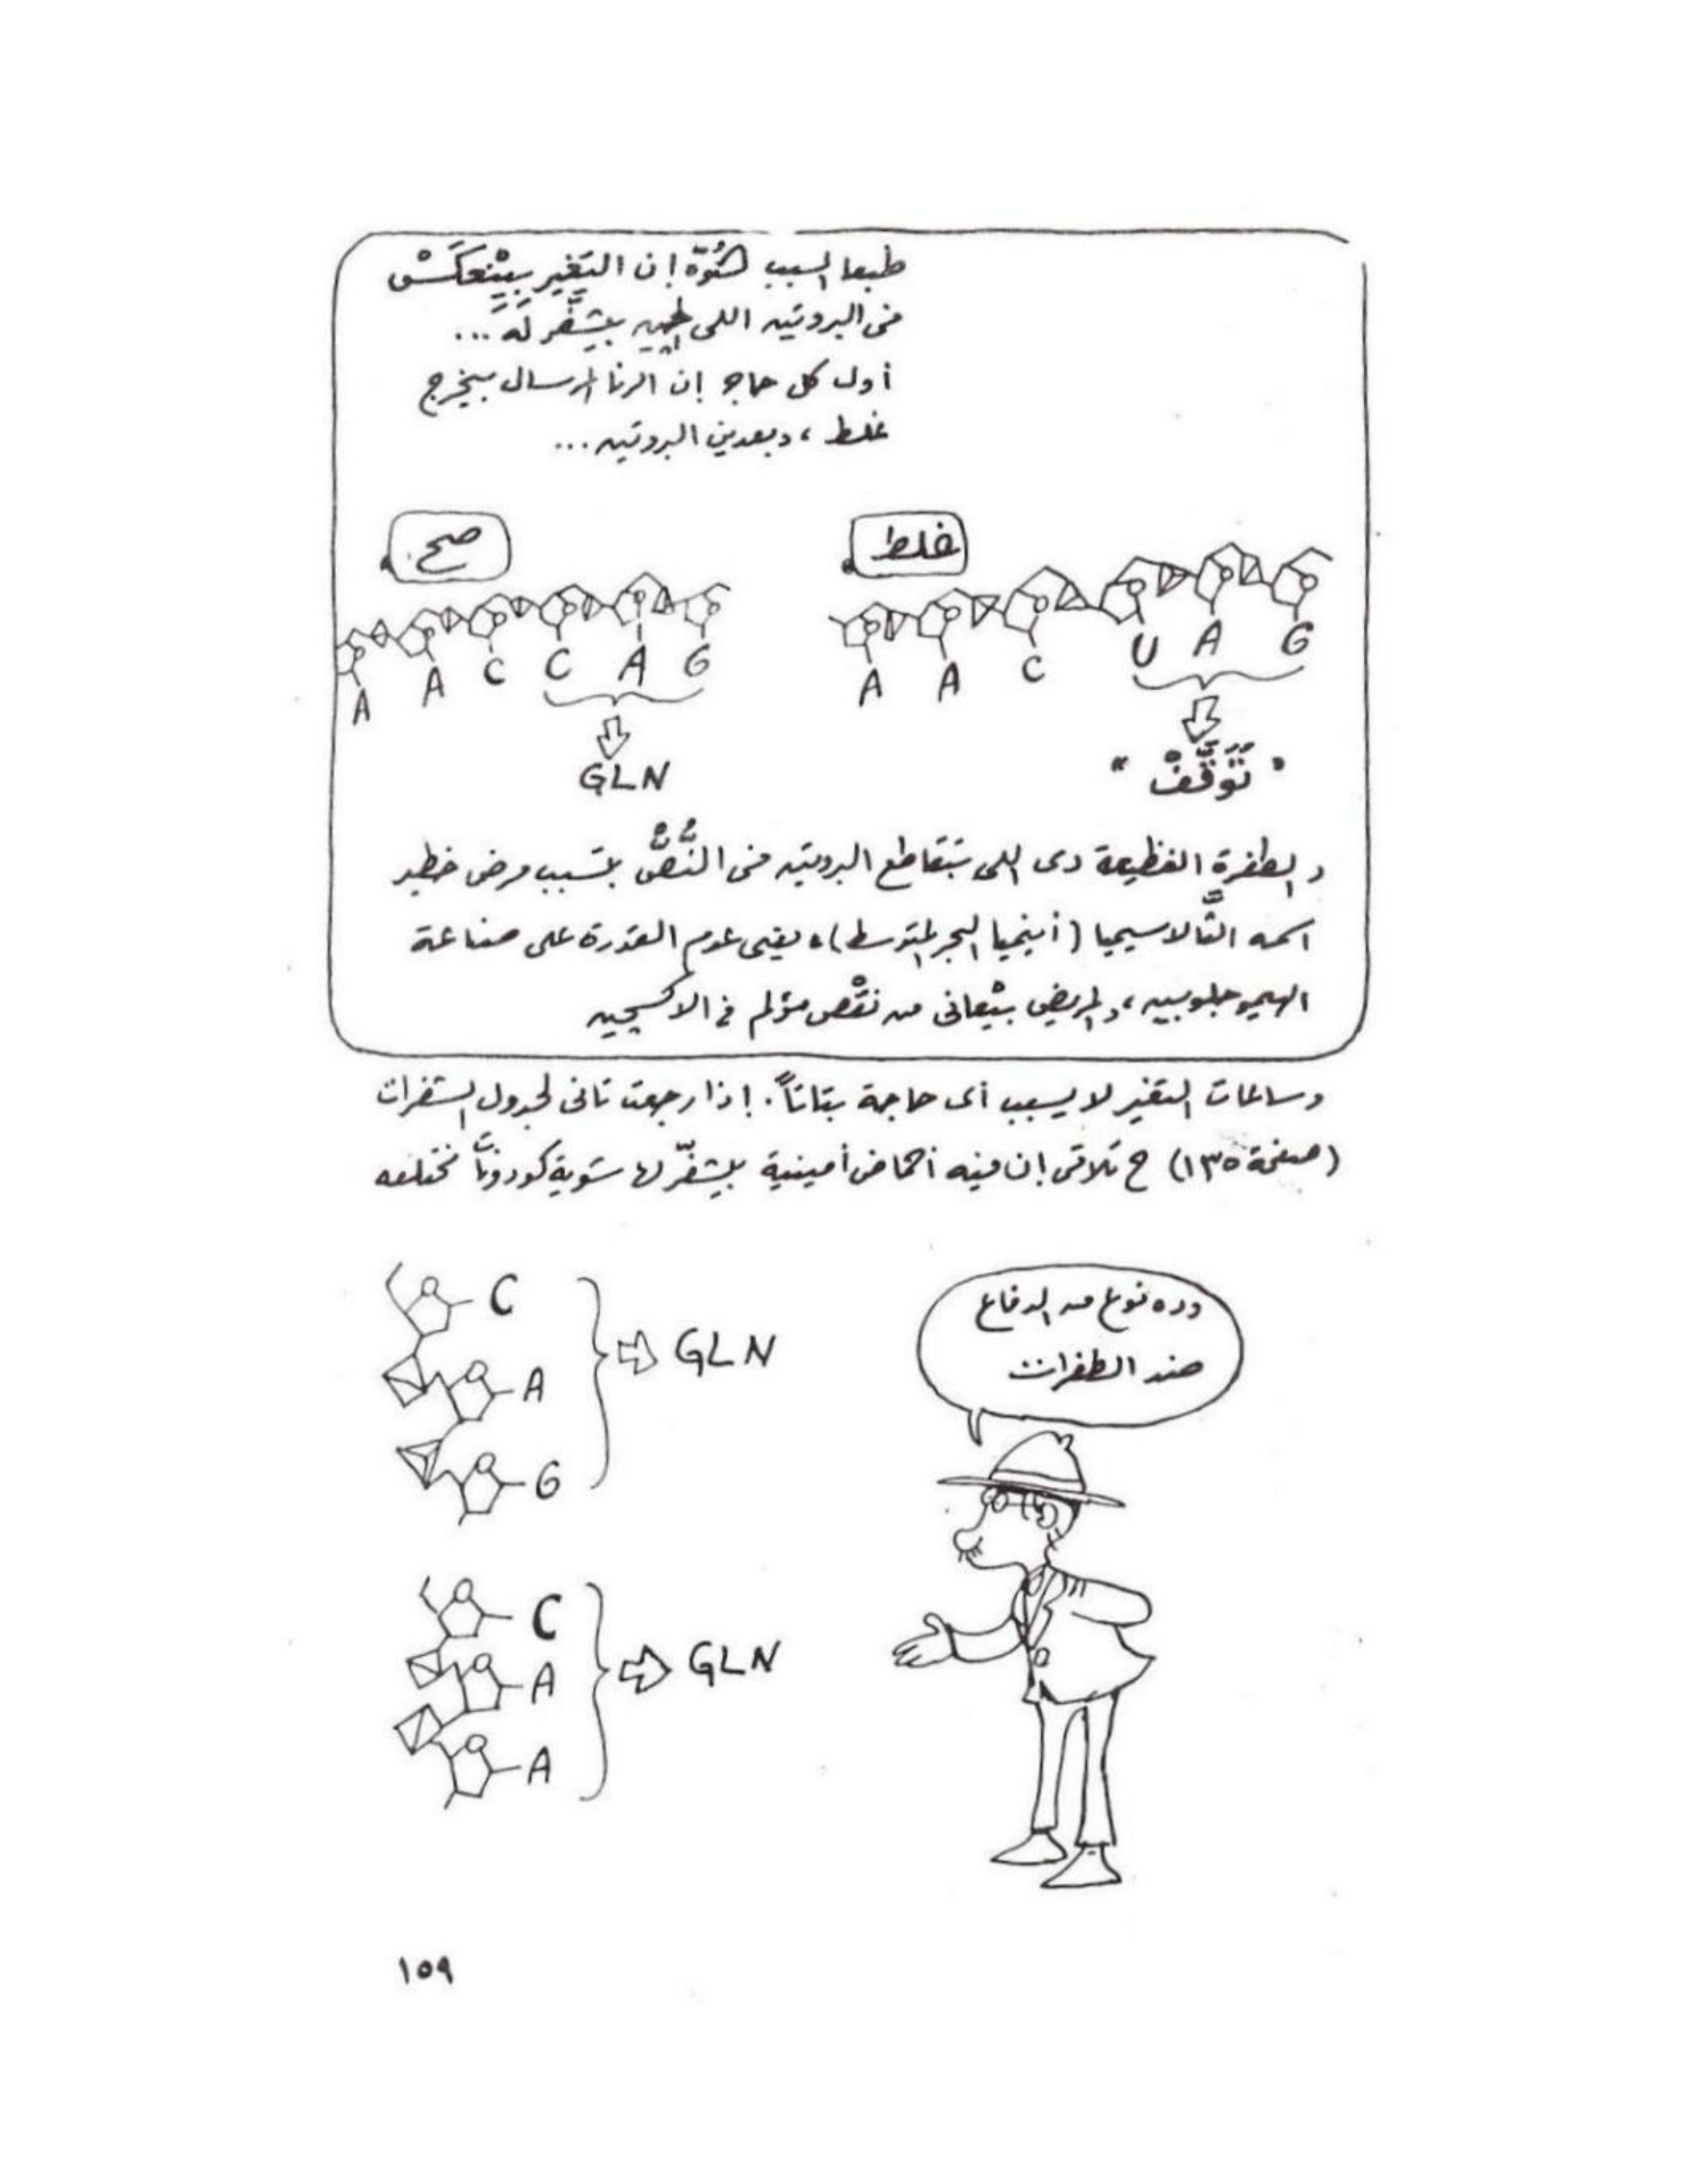 طبعا السبب هُوَّه إن التغير بِيِنْعِكِسْ
فى البروتين اللى الجين بيشَفَّر لَه ...
أول كل حاجه إن الرنا المرسال بيخرج
غلط ، وبعدين البروتين ...
صح
غلط
A A C C A G
A A C U A G
GLN
"تَوَقَّفْ"
والطفرة الفظيعة دى اللى بتقاطع البروتين فى النُّصْ بتسبب مرض خطير
اسمه الثَّالاسيميا (أنيميا البحر المتوسط)، يعنى عدم القدرة على صناعة
الهيموجلوبين ، والمريض بيْعانى من نقْص مؤلم فى الاكسچين
وساعات التغير لا يسبب أى حاجة بتاتاً. إذا رجعت تانى لجدول الشفرات
(صفحة ١٣٥) ح تلاقى إن فيه أحماض أمينية بيشفّر لها شوية كودونات مختلفه
وده نوع من الدفاع
ضد الطفرات
C
A
G
GLN
C
A
A
GLN
١٥٩